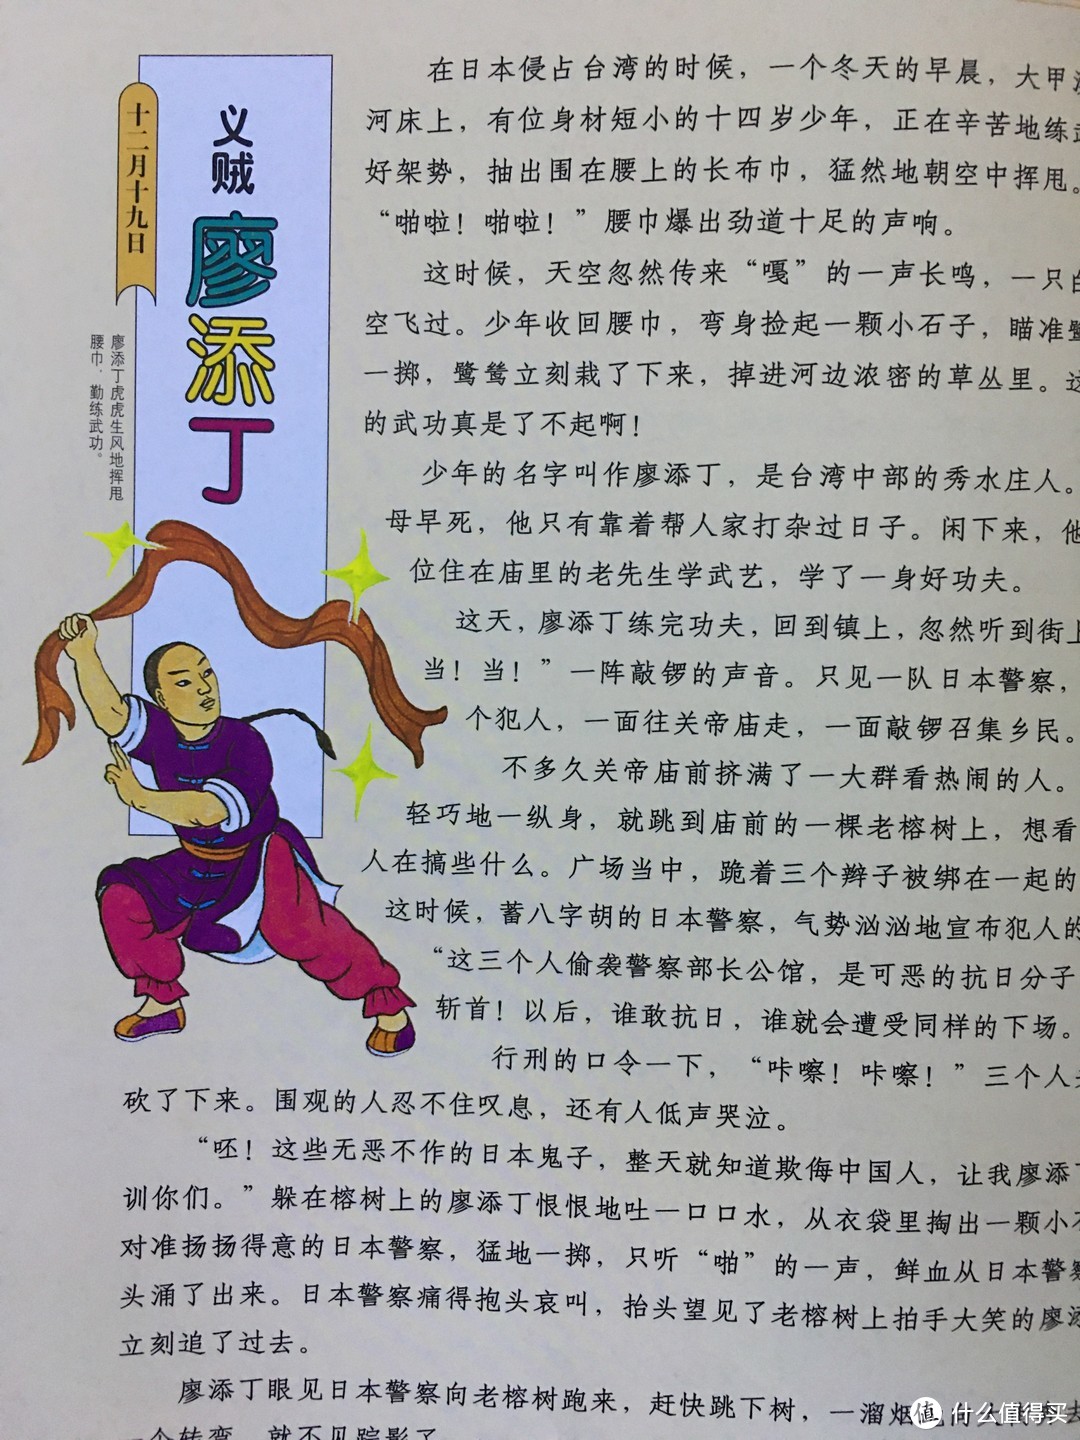 十二月十九日
义贼
廖添丁
廖添丁虎虎生风地挥甩
腰巾，勤练武功。
在日本侵占台湾的时候，一个冬天的早晨，大甲
河床上，有位身材短小的十四岁少年，正在辛苦地练
好架势，抽出围在腰上的长布巾，猛然地朝空中挥甩。
“啪啦！啪啦！”腰巾爆出劲道十足的声响。
这时候，天空忽然传来“嘎”的一声长鸣，一只
空飞过。少年收回腰巾，弯身捡起一颗小石子，瞄准
一掷，鹭鸶立刻栽了下来，掉进河边浓密的草丛里。
的武功真是了不起啊！
少年的名字叫作廖添丁，是台湾中部的秀水庄人。
母早死，他只有靠着帮人家打杂过日子。闲下来，他
位住在庙里的老先生学武艺，学了一身好功夫。
这天，廖添丁练完功夫，回到镇上，忽然听到街上
当！当！”一阵敲锣的声音。只见一队日本警察，
个犯人，一面往关帝庙走，一面敲锣召集乡民。
不多久关帝庙前挤满了一大群看热闹的人。
轻巧地一纵身，就跳到庙前的一棵老榕树上，想看
人在搞些什么。广场当中，跪着三个辫子被绑在一起的
这时候，蓄八字胡的日本警察，气势汹汹地宣布犯人的
“这三个人偷袭警察部长公馆，是可恶的抗日分子
斩首！以后，谁敢抗日，谁就会遭受同样的下场。
行刑的口令一下，“咔嚓！咔嚓！”三个人
砍了下来。围观的人忍不住叹息，还有人低声哭泣。
“呸！这些无恶不作的日本鬼子，整天就知道欺侮中国人，让我廖添
训你们。”躲在榕树上的廖添丁恨恨地吐一口口水，从衣袋里掏出一颗小
对准扬扬得意的日本警察，猛地一掷，只听“啪”的一声，鲜血从日本警察
头涌了出来。日本警察痛得抱头哀叫，抬头望见了老榕树上拍手大笑的廖添
立刻追了过去。
廖添丁眼见日本警察向老榕树跑来，赶快跳下树，一溜烟
一个转弯，就不见踪影了
值 什么值得买